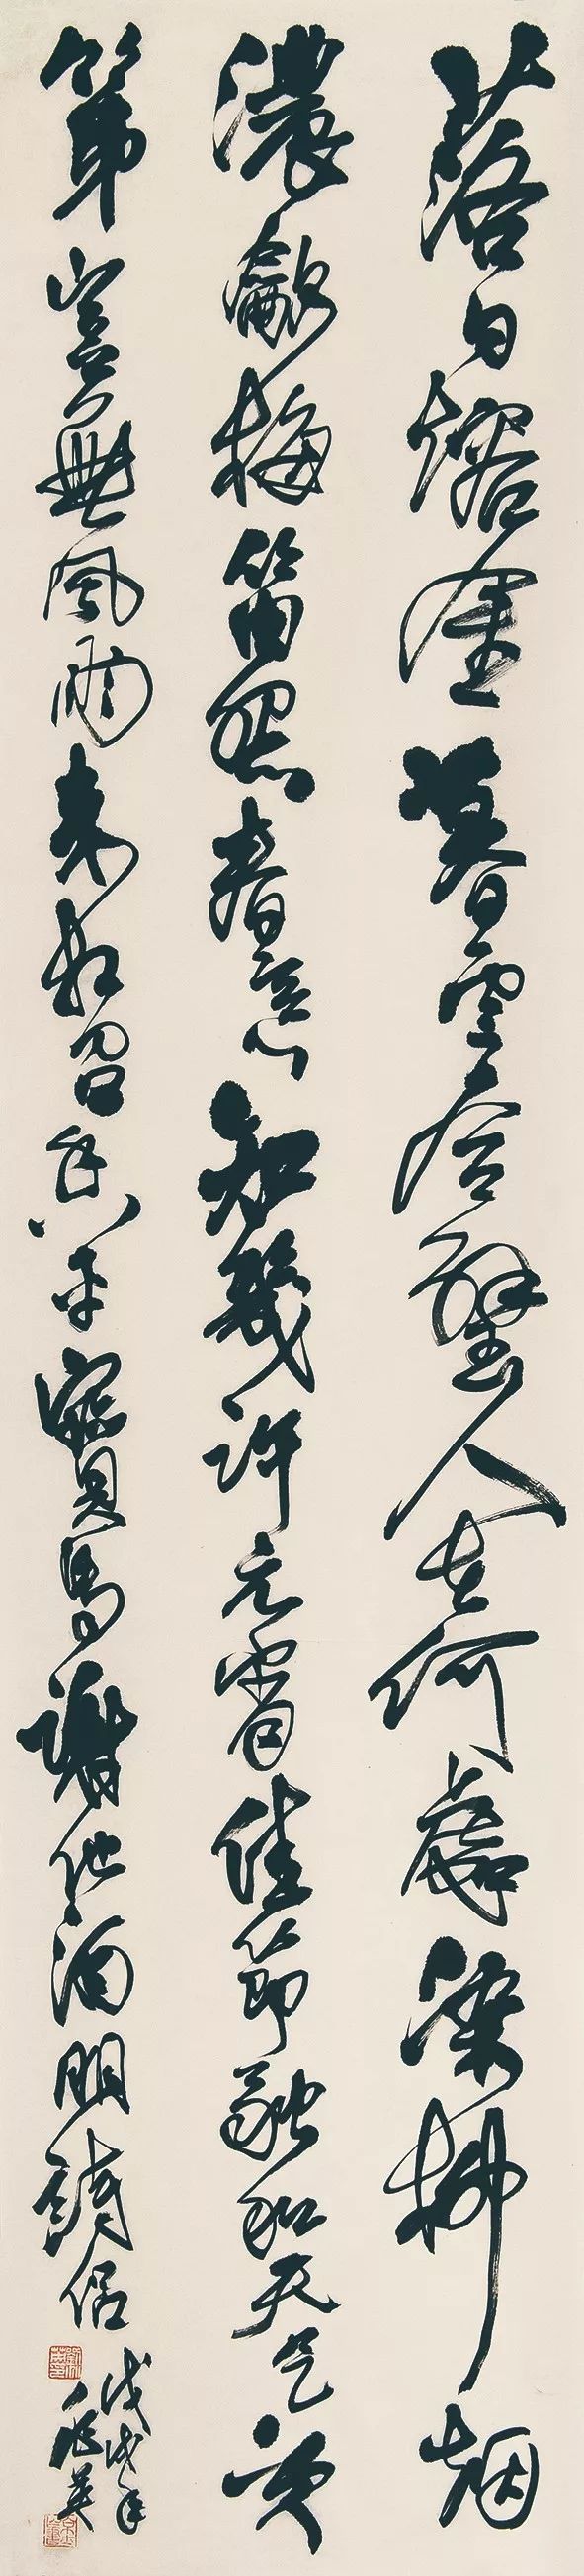 落日熔金暮雲合璧人在何處染柳烟
濃吹梅笛怨春意知幾許元宵佳節融和天氣次
第豈無風雨來相召香車寶馬謝他酒朋詩侶
戊戌年